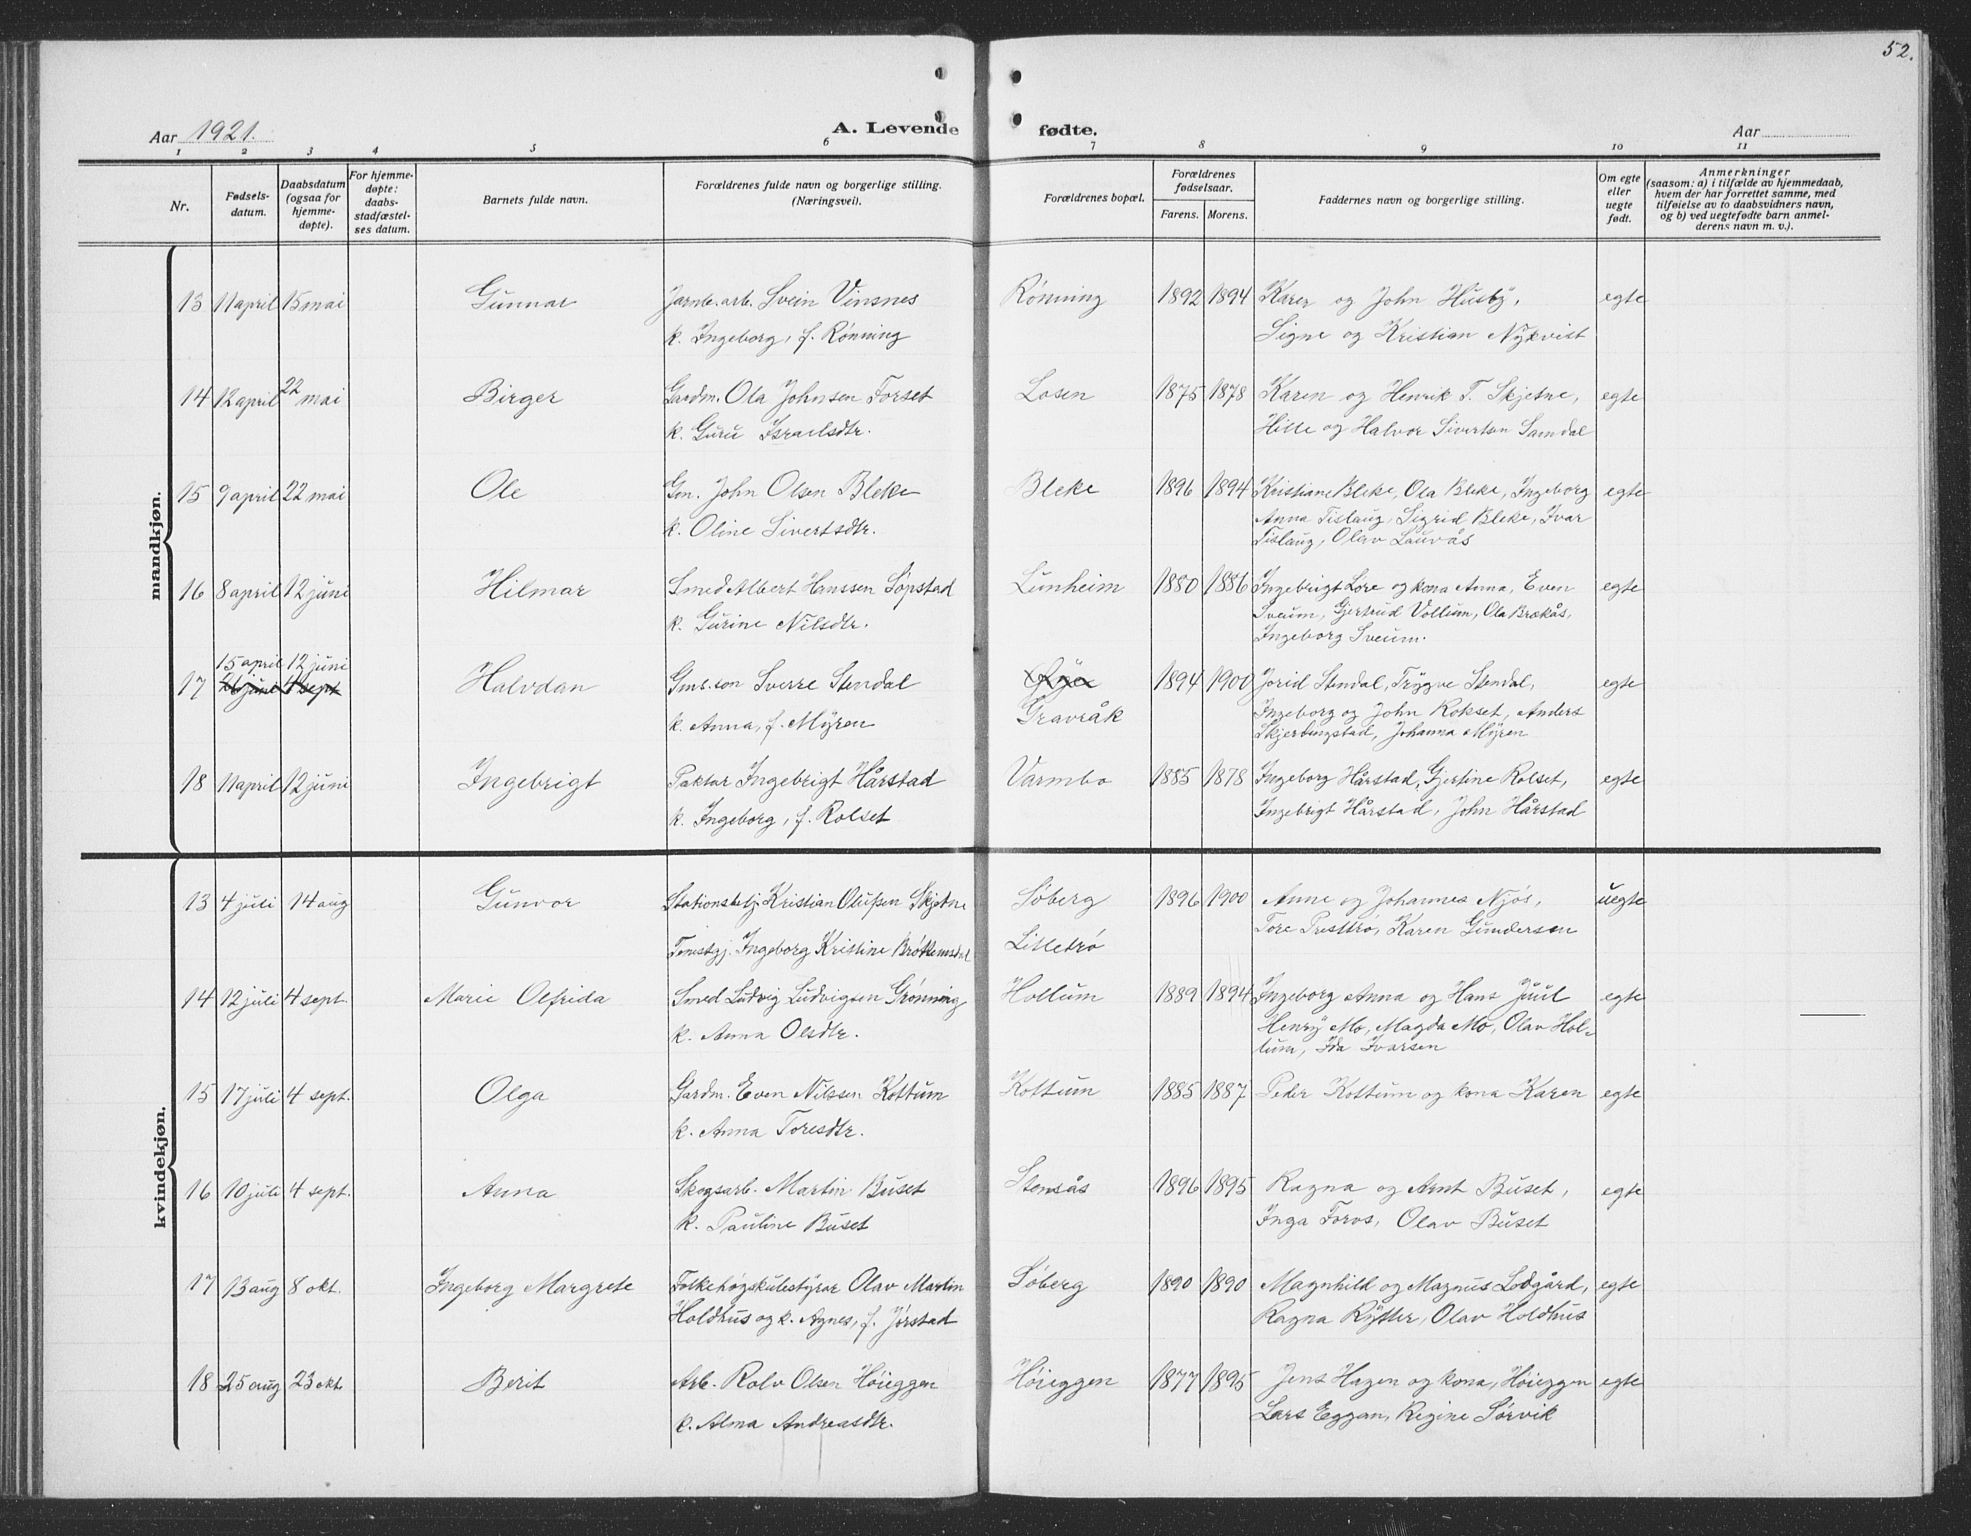 52.
Aar 1921. A. Levende fødte. Aar
1 2 3 4 5 6 7 8 9 10 11
Nr.
Fødsels-
datum.
Daabsdatum
(ogsaa for
hjemme-
døpte).
For hjemme-
døpte:
daabs-
stadfæstel-
ses datum.
Barnets fulde navn.
Forældrenes fulde navn og borgerlige stilling.
(Næringsvei).
Forældrenes bopæl.
Forældrenes
fødselsaar.
Farens. Morens.
Faddernes navn og borgerlige stilling.
Om egte
eller
uegte
født.
Anmerkninger
(saasom: a) i tilfælde av hjemmedaab,
hvem der har forrettet samme, med
tilføielse av to daabsvidners navn,
og b) ved uegtefødte barn anmel-
derens navn m. v.).
mandkjøn.
13 11 april 15 mai Gunnar Jarnb.arb. Svein Vinsnes Rønning 1892 1894 Karen og John Husby, egte
k. Ingeborg, f. Rønning Signe og Kristian Nykvist
14 12 april 22 mai Birger Gardm. Ola Johnsen Forset Losen 1875 1878 Karen og Henrik T. Skjetne, egte
k. Guru Israelsdtr. Hille og Halvor Sivertsen Samdal
15 9 april 22 mai Ole Gm. John Olsen Bleke Bleke 1896 1894 Kristiane Bleke, Ola Bleke, Ingeborg egte
k. Oline Sivertsdtr. Anna Tislaug, Sigrid Bleke, Ivar
Tislaug, Olav Lauvås
16 8 april 12 juni Hilmar Smed Albert Hanssen Søpstad Lunheim 1880 1886 Ingebrigt Lore og kona Anna, Even egte
k. Gurine Nilsdtr. Sveum, Gjertrud Vollum, Ola Brækås,
Ingeborg Sveum.
15 april 12 juni
17 21 juni 4 sept Halvdan Gms.son Sverre Stendal Øye 1894 1900 Jorid Stendal, Trygve Stendal, egte
k. Anna, f. Myren Gravråk Ingeborg og John Rokset, Anders
Skjerbingstad, Johanna Myren
18 11 april 12 juni Ingebrigt Paktar Ingebrigt Hårstad Varmbo 1885 1878 Ingeborg Hårstad, Gjertine Rolset, egte
k. Ingeborg, f. Rolset Ingebrigt Hårstad, John Hårstad
kvindekjøn.
13 4 juli 14 aug Gunvor Stationsbetj. Kristian Olufsen Skjetne Søberg 1896 1900 Anne og Johannes Njøs, uegte
Tenestgj. Ingeborg Kristine Brøttemsdal Litletrø Tore Presttrø, Karen Gundersen
14 12 juli 4 sept. Marie Olfrida Smed Ludvig Ludvigsen Grønning Hollum 1889 1894 Ingeborg Anna og Hans Juul egte
k. Anna Olsdtr. Henry Mo, Magda Mo, Olav Hol-
lum, Ida Ivarsen
15 17 juli 4 sept. Olga Gardm. Even Nilssen Kottum Kottum 1885 1887 Peder Kottum og kona Karen egte
k. Anna Toresdtr.
16 10 juli 4 sept. Anna Skogsarb. Martin Buset Stensås 1896 1895 Ragna og Arnt Buset, egte
k. Pauline Buset Inga Foros, Olav Buset
17 13 aug 8 okt. Ingeborg Margrete Folkehøgskulestyrar Olav Martin Søberg 1890 1890 Magnhild og Magnus Lodgård, egte
Holdhus og k. Agnes, f. Jørstad Ragna Rytter, Olav Holdhus
18 25 aug 23 okt. Berit Arb. Rolv Olsen Høieggen Høieggen 1877 1895 Jens Hagen og kona, Høieggen egte
k. Alma Andreasdtr. Lars Eggan, Regine Sørvik